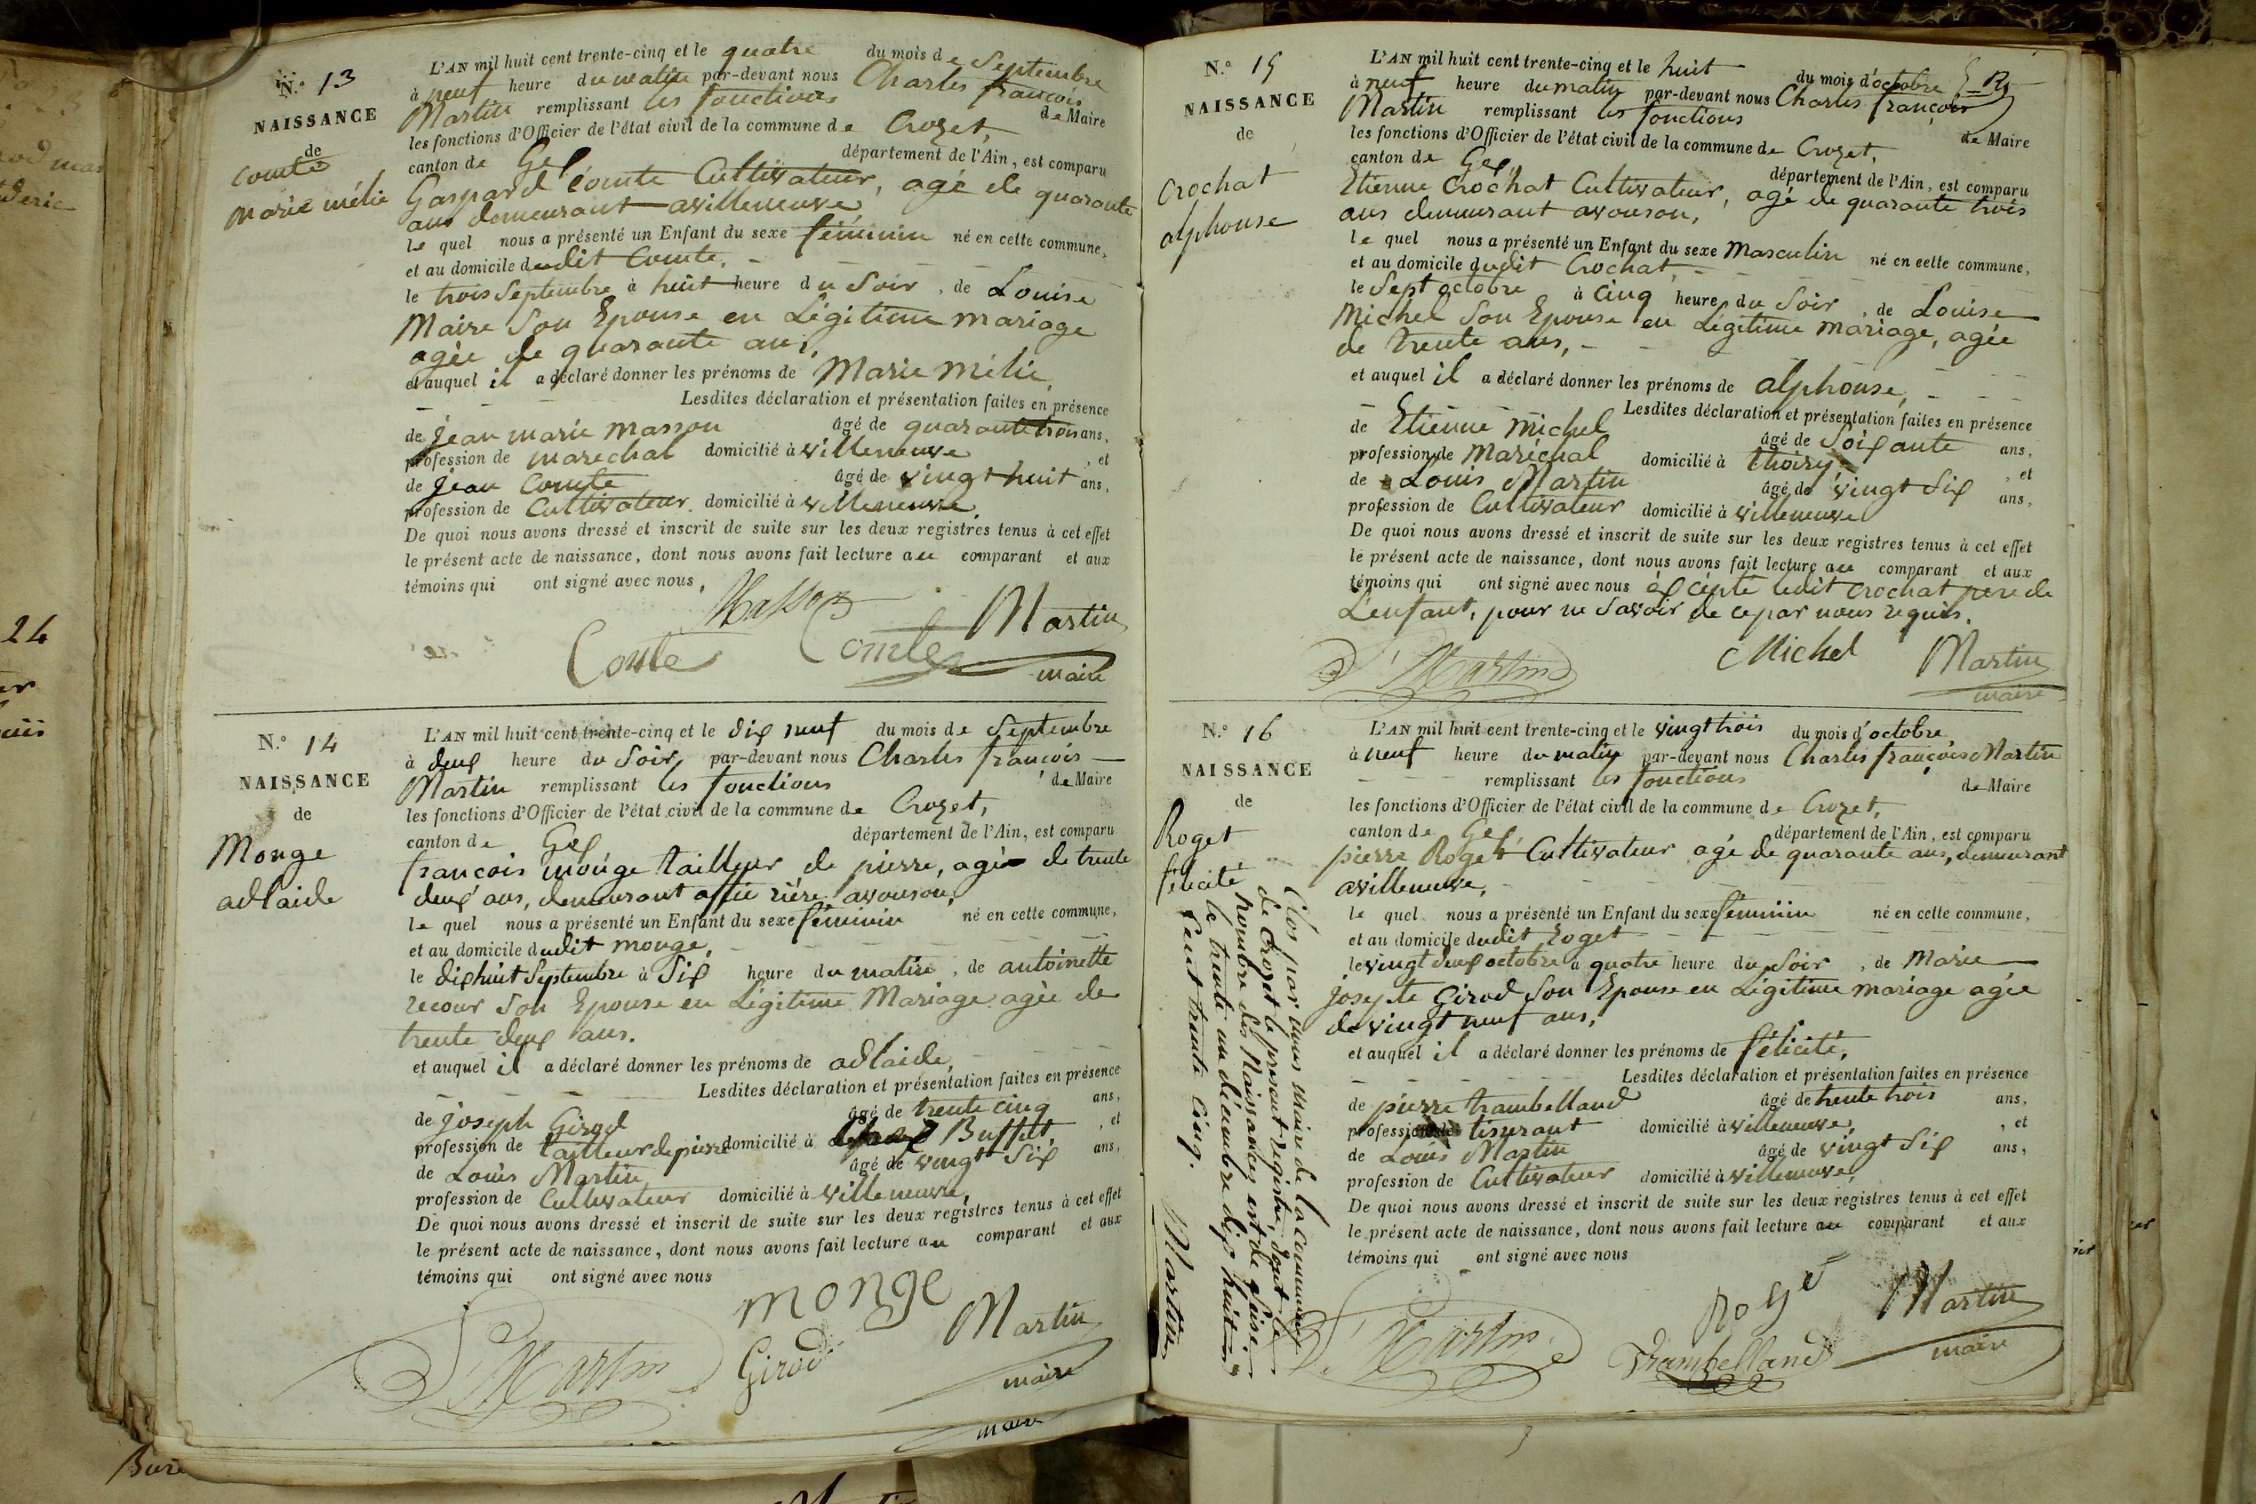 N.º 13
NAISSANCE
de
Comte
Marie mélie
L'AN mil huit cent trente-cinq et le quatre du mois de Septembre
à neuf heure du matin par-devant nous Charles françois
Martin remplissant les fonctions de Maire
les fonctions d'Officier de l'état civil de la commune de Crozet,
canton de Gex département de l'Ain, est comparu
Gaspard Comte Cultivateur, agé de quarante
ans demeurant avilleneuve
le quel nous a présenté un Enfant du sexe féminin né en cette commune,
et au domicile dudit Comte,
le trois Septembre à huit heure du Soir, de Louise
Maire Son Epouse en Légitime mariage
agée de quarante ans,
et auquel il a déclaré donner les prénoms de Marie mélie,
Lesdites déclaration et présentation faites en présence
de jean marie masson âgé de quarante trois ans,
profession de marechal domicilié à villeneuve, et
de jean Comte âgé de vingt huit ans,
profession de Cultivateur domicilié à villeneuve,
De quoi nous avons dressé et inscrit de suite sur les deux registres tenus à cet effet
le présent acte de naissance, dont nous avons fait lecture au comparant et aux
témoins qui ont signé avec nous,
Masson
Comte Comte Martin
maire
N.º 14
NAISSANCE
de
Monge
adlaide
L'AN mil huit cent trente-cinq et le dix neuf du mois de Septembre
à deux heure du Soir par-devant nous Charles françois
Martin remplissant les fonctions de Maire
les fonctions d'Officier de l'état civil de la commune de Crozet,
canton de Gex département de l'Ain, est comparu
françois monge tailleur de pierre, agé de trente
deux ans, demeurant rière avouson,
le quel nous a présenté un Enfant du sexe féminin né en cette commune,
et au domicile dudit monge,
le dixhuit Septembre à Six heure du matin, de antoinette
recour Son Epouse en Légitime Mariage agée de
trente deux ans.
et auquel il a déclaré donner les prénoms de adlaide,
Lesdites déclaration et présentation faites en présence
de joseph Girod âgé de trente cinq ans,
profession de tailleur de pierre domicilié à, et
de Louis Martin âgé de vingt Six ans,
profession de Cultivateur domicilié à villeneuve,
De quoi nous avons dressé et inscrit de suite sur les deux registres tenus à cet effet
le présent acte de naissance, dont nous avons fait lecture au comparant et aux
témoins qui ont signé avec nous
monge
Martin Girod Martin
maire
N.º 15
NAISSANCE
de
Crochat
alphonse
L'AN mil huit cent trente-cinq et le huit du mois d'octobre
à neuf heure du matin par-devant nous Charles françois
Martin remplissant les fonctions de Maire
les fonctions d'Officier de l'état civil de la commune de Crozet,
canton de Gex, département de l'Ain, est comparu
Etienne Crochat Cultivateur, agé de quarante trois
ans demeurant avouson,
le quel nous a présenté un Enfant du sexe Masculin né en cette commune,
et au domicile dudit Crochat,
le Sept octobre à cinq heure du Soir, de Louise
Michel Son Epouse en Légitime mariage, agée
de trente ans,
et auquel il a déclaré donner les prénoms de alphonse,
Lesdites déclaration et présentation faites en présence
de Etienne Michel âgé de Soixante ans,
profession de Maréchal domicilié à thoiry, et
de Louis Martin âgé de vingt Six ans,
profession de Cultivateur domicilié à villeneuve
De quoi nous avons dressé et inscrit de suite sur les deux registres tenus à cet effet
le présent acte de naissance, dont nous avons fait lecture au comparant et aux
témoins qui ont signé avec nous excépté ledit Crochat pere de
L'enfant, pour ne Savoir de ce par nous requis.
Martin Michel Martin
maire
N.º 16
NAISSANCE
de
Roget
félicité
L'AN mil huit cent trente-cinq et le vingt trois du mois d'octobre
à neuf heure du matin par-devant nous Charles françois Martin
remplissant les fonctions de Maire
les fonctions d'Officier de l'état civil de la commune de Crozet,
canton de Gex département de l'Ain, est comparu
pierre Roget Cultivateur agé de quarante ans, demeurant
avilleneuve,
le quel nous a présenté un Enfant du sexe féminin né en cette commune,
et au domicile dudit Roget
le vingt deux octobre à quatre heure du Soir, de Marie
josepte Girod Son Epouse en Légitime mariage agée
de vingt neuf ans,
et auquel il a déclaré donner les prénoms de félicité,
Lesdites déclaration et présentation faites en présence
de pierre trambelland âgé de trente trois ans,
profession de tisserant domicilié à villeneuve, et
de Louis Martin âgé de vingt Six ans,
profession de Cultivateur domicilié à villeneuve,
De quoi nous avons dressé et inscrit de suite sur les deux registres tenus à cet effet
le présent acte de naissance, dont nous avons fait lecture au comparant et aux
témoins qui ont signé avec nous
Martin Trambelland Martin
maire
Clos par nous maire de la commune
de Crozet le present registre, dont le
nombre des Naissances est de Seize
le trente un décembre dix huit
cent trente cinq.
Martin